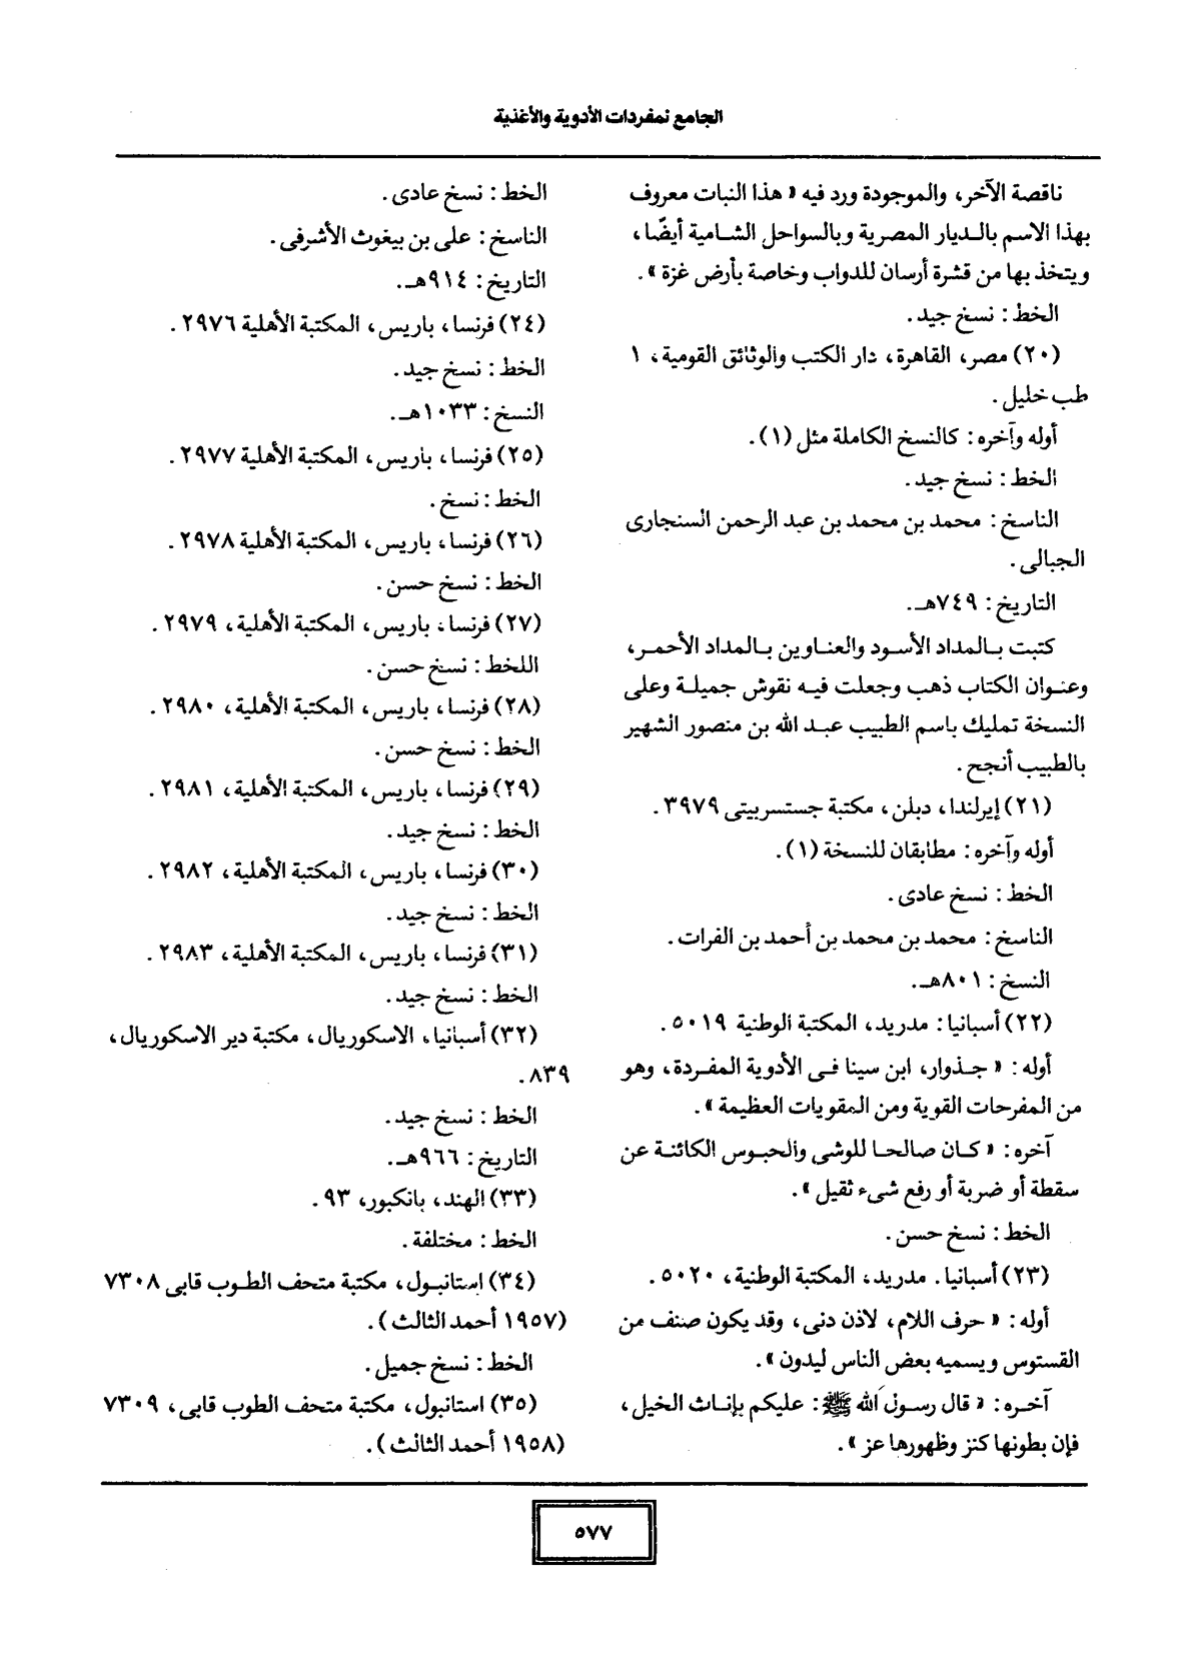 الجامع لمفردات الأدوية والأغذية
ناقصة الآخر، والموجودة ورد فيه « هذا النبات معروف
بهذا الاسم بالديار المصرية وبالسواحل الشامية أيضًا،
ويتخذ بها من قشرة أرسان للدواب وخاصة بأرض غزة ».
الخط : نسخ جيد.
(٢٠) مصر، القاهرة، دار الكتب والوثائق القومية، ١
طب خليل.
أوله وآخره : كالنسخ الكاملة مثل (١).
الخط : نسخ جيد.
الناسخ : محمد بن محمد بن عبد الرحمن السنجارى
الجبالى.
التاريخ : ٧٤٩هـ.
كتبت بالمداد الأسود والعناوين بالمداد الأحمر،
وعنوان الكتاب ذهب وجعلت فيه نقوش جميلة وعلى
النسخة تمليك باسم الطبيب عبد الله بن منصور الشهير
بالطبيب أنجح.
(٢١) إيرلندا، دبلن، مكتبة جستسربيتى ٣٩٧٩.
أوله وآخره : مطابقان للنسخة (١).
الخط : نسخ عادى.
الناسخ : محمد بن محمد بن أحمد بن الفرات.
النسخ : ٨٠١هـ.
(٢٢) أسبانيا : مدريد، المكتبة الوطنية ٥٠١٩.
أوله : « جذوار، ابن سينا فى الأدوية المفردة، وهو
من المفرحات القوية ومن المقويات العظيمة ».
آخره : « كان صالحا للوشى والحبوس الكائنة عن
سقطة أو ضربة أو رفع شىء ثقيل ».
الخط : نسخ حسن.
(٢٣) أسبانيا. مدريد، المكتبة الوطنية، ٥٠٢٠.
أوله : « حرف اللام، لاذن دنى، وقد يكون صنف من
القستوس ويسميه بعض الناس ليدون ».
آخره : « قال رسول الله ﷺ : عليكم بإناث الخيل،
فإن بطونها كنز وظهورها عز ».
الخط : نسخ عادى.
الناسخ : على بن بيغوث الأشرفى.
التاريخ : ٩١٤هـ.
(٢٤) فرنسا، باريس، المكتبة الأهلية ٢٩٧٦.
الخط : نسخ جيد.
النسخ : ١٠٣٣هـ.
(٢٥) فرنسا، باريس، المكتبة الأهلية ٢٩٧٧.
الخط : نسخ.
(٢٦) فرنسا، باريس، المكتبة الأهلية ٢٩٧٨.
الخط : نسخ حسن.
(٢٧) فرنسا، باريس، المكتبة الأهلية، ٢٩٧٩.
اللخط : نسخ حسن.
(٢٨) فرنسا، باريس، المكتبة الأهلية، ٢٩٨٠.
الخط : نسخ حسن.
(٢٩) فرنسا، باريس، المكتبة الأهلية، ٢٩٨١.
الخط : نسخ جيد.
(٣٠) فرنسا، باريس، المكتبة الأهلية، ٢٩٨٢.
الخط : نسخ جيد.
(٣١) فرنسا، باريس، المكتبة الأهلية، ٢٩٨٣.
الخط : نسخ جيد.
(٣٢) أسبانيا، الاسكوريال، مكتبة دير الاسكوريال،
٨٣٩.
الخط : نسخ جيد.
التاريخ : ٩٦٦هـ.
(٣٣) الهند، بانكبور، ٩٣.
الخط : مختلفة.
(٣٤) استانبول، مكتبة متحف الطوب قابى ٧٣٠٨
(١٩٥٧ أحمد الثالث).
الخط : نسخ جميل.
(٣٥) استانبول، مكتبة متحف الطوب قابى، ٧٣٠٩
(١٩٥٨ أحمد الثالث).
٥٧٧